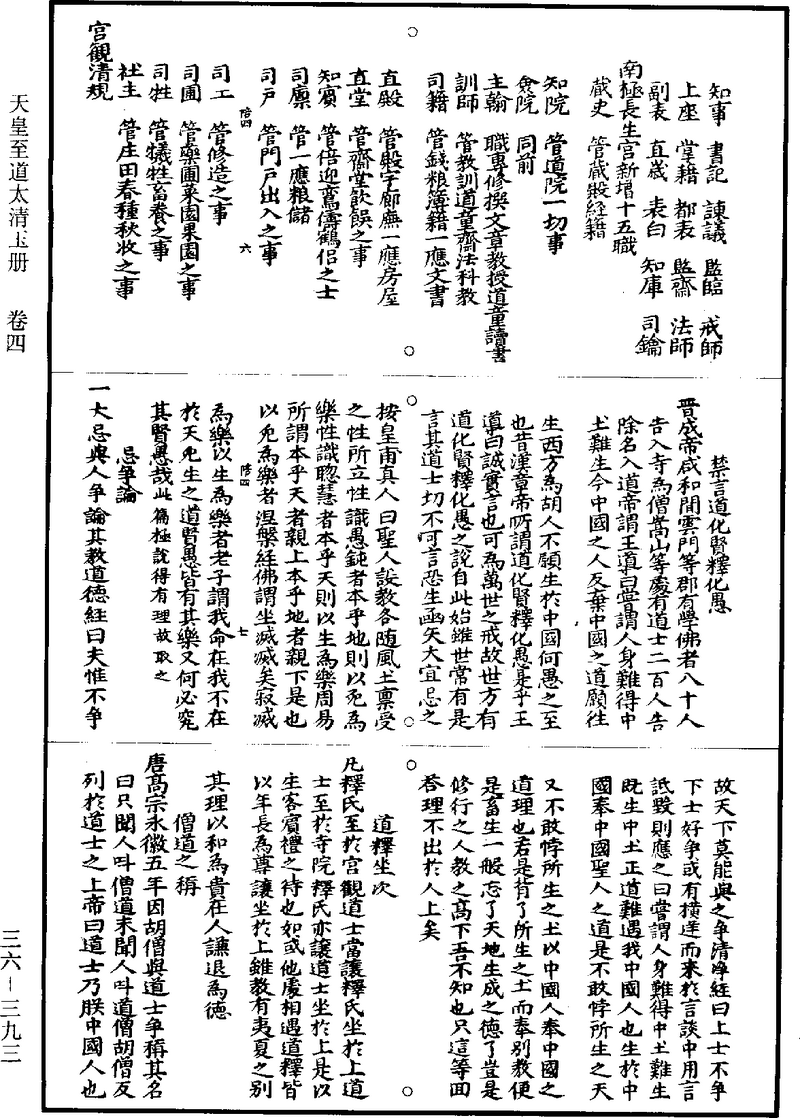 天皇至道太清玉册　卷四
三六－三九三
知事　書記　諫議　監臨　戒師
上座　掌籍　都表　監齋　法師
副表　直歲　表白　知庫　司鑰
南極長生宮新增十五職
藏史　管藏殿經籍
知院　管道院一切事
僉院　同前
主翰　職專修撰文章教授道童讀書
訓師　管教訓道童齋法科教
司籍　管錢粮簿籍一應文書
直殿　管殿宇廊廡一應房屋
直堂　管齋堂飲饌之事
知賓　管倍迎鸞儔鶴侶之士
司廩　管一應粮儲
司戶　管門戶出入之事
陪四　六
司工　管修造之事
司圃　管藥圃菜園果園之事
司牲　管犧牲畜養之事
社主　管庄田春種秋收之事
宮觀清規
禁言道化賢釋化愚
晉成帝咸和間雲門等郡有學佛者八十人
告入寺為僧嵩山等處有道士二百人告
除名入道帝謂王導曰嘗謂人身難得中
土難生今中國之人反棄中國之道願往
生西方為胡人不願生於中國何愚之至
也昔漢章帝所謂道化賢釋化愚是乎王
導曰誠實言也可為萬世之戒故世方有
道化賢釋化愚之說自此始雖世常有是
言其道士切不可言恐生函矢大宜忌之
按皇甫真人曰聖人設教各随風土禀受
之性所立性識愚鈍者本乎地則以死為
樂性識聰慧者本乎天則以生為樂周易
所謂本乎天者親上本乎地者親下是也
以死為樂者涅槃經佛謂坐滅滅矣寂滅
陪四　七
為樂以生為樂者老子謂我命在我不在
於天先生之道賢愚皆有其樂又何必究
其賢愚哉此篇極說得有理故取之
忌爭論
一大忌與人爭論其教道德經曰夫惟不爭
故天下莫能與之爭清淨經曰上士不爭
下士好爭或有橫逆而來於言談中用言
詆毀則應之曰嘗謂人身難得中土難生
既生中土正道難遇我中國人也生於中
國奉中國聖人之道是不敢悖所生之天
又不敢悖所生之土以中國人奉中國之
道理也若是背了所生之土而奉別教便
是畜生一般忘了天地生成之德了豈是
修行之人教之高下吾不知也只這等回
答理不出於人上矣
道釋坐次
凡釋氏至於宮觀道士當讓釋氏坐於上道
士至於寺院釋氏亦讓道士坐於上是以
生客賓禮之待也如或他處相遇道釋皆
以年長為尊讓坐於上雖教有夷夏之別
其理以和為貴在人謙退為德
僧道之稱
唐髙宗永徽五年因胡僧與道士爭稱其名
曰只聞人呌僧道未聞人呌道僧胡僧反
列於道士之上帝曰道士乃朕中國人也